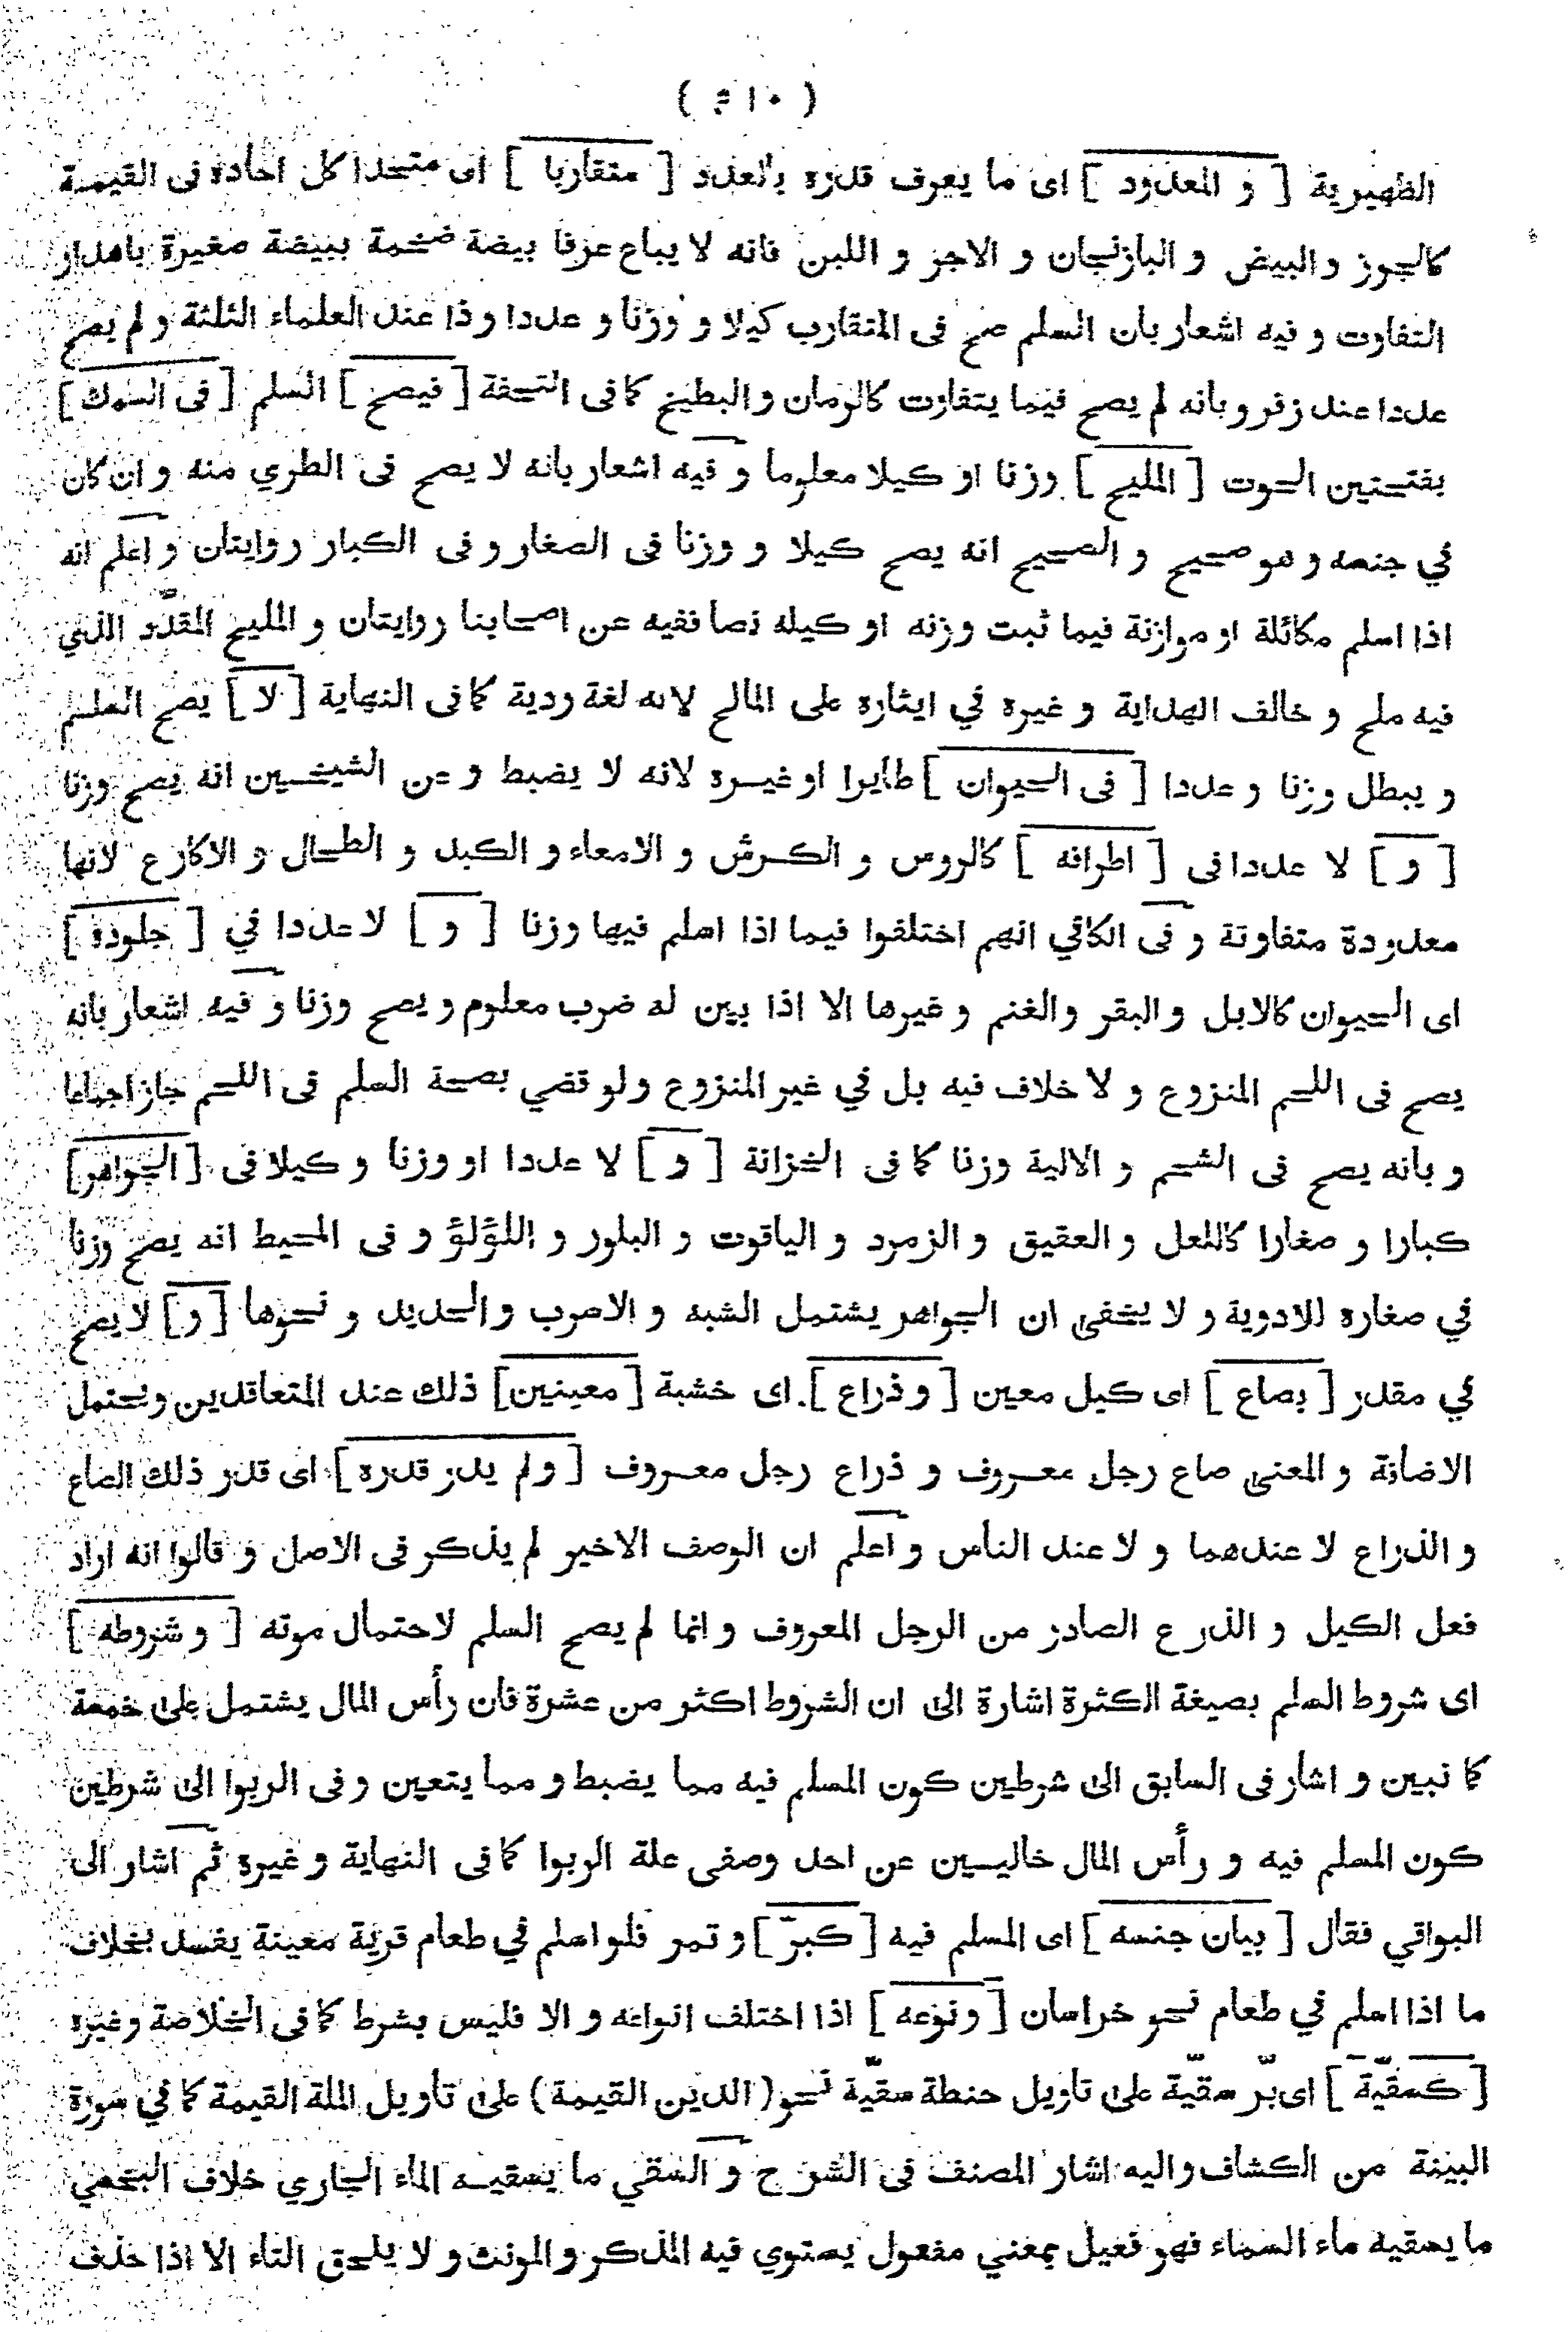 ( ٥١٠ )
الظهيرية [ و المعدود ] اى ما يعرف قدره بالعدد [ متقاربا ] اى متحدا كل احاده فى القيمة
كالجوز و البيض و الباذنجان و الاجر و اللبن فانه لا يباع عرفا بيضة ضخمة ببيضة صغيرة باهدار
التفاوت و فيه اشعار بان السلم صح فى المتقارب كيلا و وزنا و عددا و ذا عند العلماء الثلثة و لم يصح
عددا عند زفر و بانه لم يصح فيما يتفاوت كالرمان و البطيخ كما فى التحفة [ فيصح ] السلم [ فى السمك ]
بفتحتين الحوت [ المليح ] وزنا او كيلا معلوما و فيه اشعار بانه لا يصح فى الطري منه و ان كان
في جنسه و هو صحيح و الصحيح انه يصح كيلا و وزنا فى الصغار و فى الكبار روايتان و اعلم انه
اذا اسلم مكائلة او موازنة فيما ثبت وزنه او كيله نصا ففيه عن اصحابنا روايتان و المليح المقدّد الذي
فيه ملح و خالف الهداية و غيره في ايثاره على المالح لانه لغة ردية كما فى النهاية [ لا ] يصح السلم
و يبطل وزنا و عددا [ فى الحيوان ] طايرا او غيره لانه لا يضبط و عن الشيخين انه يصح وزنا
[ و ] لا عددا فى [ اطرافه ] كالروس و الكرش و الامعاء و الكبد و الطحال و الاكارع لانها
معدودة متفاوتة و فى الكافي انهم اختلفوا فيما اذا اسلم فيها وزنا [ و ] لا عددا في [ جلوده ]
اى الحيوان كالابل و البقر و الغنم و غيرها الا اذا بين له ضرب معلوم و يصح وزنا و فيه اشعار بانه
يصح فى اللحم المنزوع و لا خلاف فيه بل في غير المنزوع و لو قضي بصحة السلم فى اللحم جاز اجماعا
و بانه يصح فى الشحم و الالية وزنا كما فى الخزانة [ و ] لا عددا او وزنا و كيلا فى [ الجواهر ]
كبارا و صغارا كاللعل و العقيق و الزمرد و الياقوت و البلور و اللؤلؤ و فى المحيط انه يصح وزنا
في صغاره للادوية و لا يخفى ان الجواهر يشتمل الشبه و الاسرب و الحديد و نحوها [ و ] لا يصح
في مقدر [ بصاع ] اى كيل معين [ و ذراع ] اى خشبة [ معينين ] ذلك عند المتعاقدين و يحتمل
الاضافة و المعنى صاع رجل معروف و ذراع رجل معروف [ و لم يدر قدره ] اى قدر ذلك الصاع
و الذراع لا عندهما و لا عند الناس و اعلم ان الوصف الاخير لم يذكر فى الاصل و قالوا انه اراد
فعل الكيل و الذرع الصادر من الرجل المعروف و انما لم يصح السلم لاحتمال موته [ و شروطه ]
اى شروط السلم بصيغة الكثرة اشارة الى ان الشروط اكثر من عشرة فان رأس المال يشتمل على خمسة
كما نبين و اشار فى السابق الى شرطين كون المسلم فيه مما يضبط و مما يتعين و فى الربوا الى شرطين
كون المسلم فيه و رأس المال خاليين عن احد وصفى علة الربوا كما فى النهاية و غيره ثم اشار الى
البواقي فقال [ بيان جنسه ] اى المسلم فيه [ كبرّ ] و تمر فلو اسلم في طعام قرية معينة يفسد بخلاف
ما اذا اسلم في طعام نحو خراسان [ و نوعه ] اذا اختلف انواعه و الا فليس بشرط كما فى الخلاصة و غيره
[ كسقيّة ] اى برّ سقيّة على تأويل حنطة سقيّة نحو ( الدين القيمة ) على تأويل الملة القيمة كما في سورة
البينة من الكشاف و اليه اشار المصنف فى الشرح و السقي ما يسقيه الماء الجاري خلاف البخسي
ما يسقيه ماء السماء فهو فعيل بمعني مفعول يستوي فيه المذكر و المونث و لا يلحق التاء الا اذا حذف